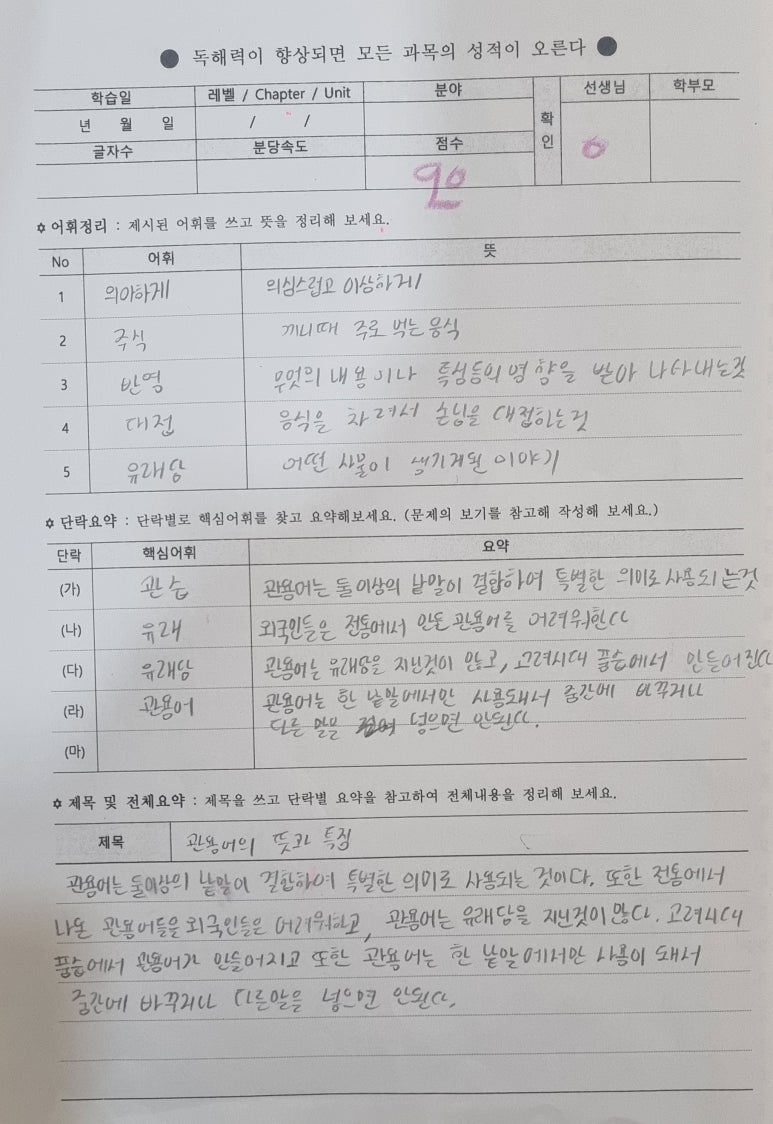 독해력이 향상되면 모든 과목의 성적이 오른다
학습일 레벨 / Chapter / Unit 분야 확인 선생님 학부모
년 월 일 / /
글자수 분당속도 점수
90
✡ 어휘정리 : 제시된 어휘를 쓰고 뜻을 정리해 보세요.
No 어휘 뜻
1 의아하게 의심스럽고 이상하게
2 주식 끼니때 주로 먹는 음식
3 반영 무엇의 내용이나 특성등의 영향을 받아 나타내는것
4 대접 음식을 차려서 손님을 대접하는것
5 유래담 어떤 사물이 생기게된 이야기
✡ 단락요약 : 단락별로 핵심어휘를 찾고 요약해보세요. (문제의 보기를 참고해 작성해 보세요.)
단락 핵심어휘 요약
(가) 관습 관용어는 둘이상의 낱말이 결합하여 특별한 의미로 사용되는것
(나) 유래 외국인들은 전통에서 만든 관용어를 어려워한다
(다) 유래담 관용어는 유래담을 지닌것이 많고, 고려시대 풍습에서 만들어진다
(라) 관용어 관용어는 한 낱말에서만 사용돼서 중간에 바꾸거나
다른 말을 넣으면 안된다.
(마)
✡ 제목 및 전체요약 : 제목을 쓰고 단락별 요약을 참고하여 전체내용을 정리해 보세요.
제목 관용어의 뜻과 특징
관용어는 둘이상의 낱말이 결합하여 특별한 의미로 사용되는 것이다. 또한 전통에서
나온 관용어들을 외국인들은 어려워하고, 관용어는 유래담을 지닌것이 많다. 고려시대
풍습에서 관용어가 만들어지고 또한 관용어는 한 낱말에서만 사용이 돼서
중간에 바꾸거나 다른말을 넣으면 안된다.